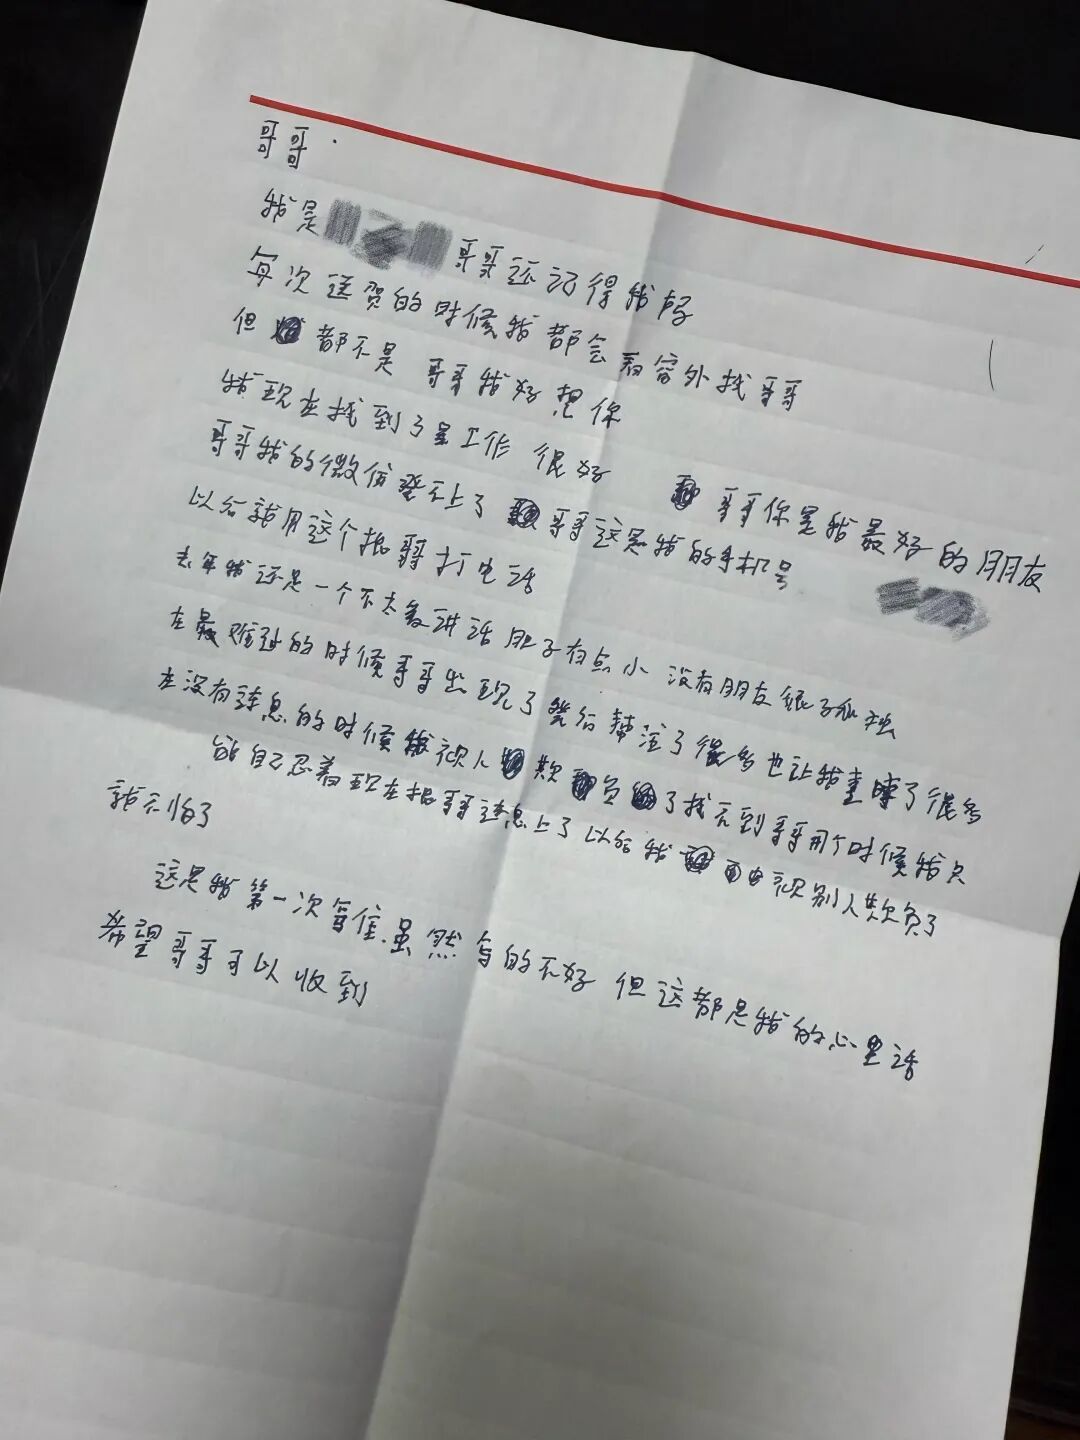 哥哥.
我是 哥哥还记得我好
每次送货的时候我都会看窗外找哥哥
但 都不是 哥哥我好想你
我现在找到了 工作 很好 哥哥你是我最好的朋友
哥哥我的微信登不上了 哥哥这是我的手机号
以后就用这个跟哥打电话
去年我还是一个不太多讲话 胆子有点小 没有朋友 孤独
在最难过的时候哥哥出现了 然后帮 了很多也让我 了很多
在没有 息的时候我被人 欺 负 了找不到哥哥那个时候我只
能自己忍着现在跟哥哥 上了 以后我 被别人欺负了
就不怕了
这是我第一次写信.虽然写的不好 但这都是我的心里话
希望哥哥可以收到